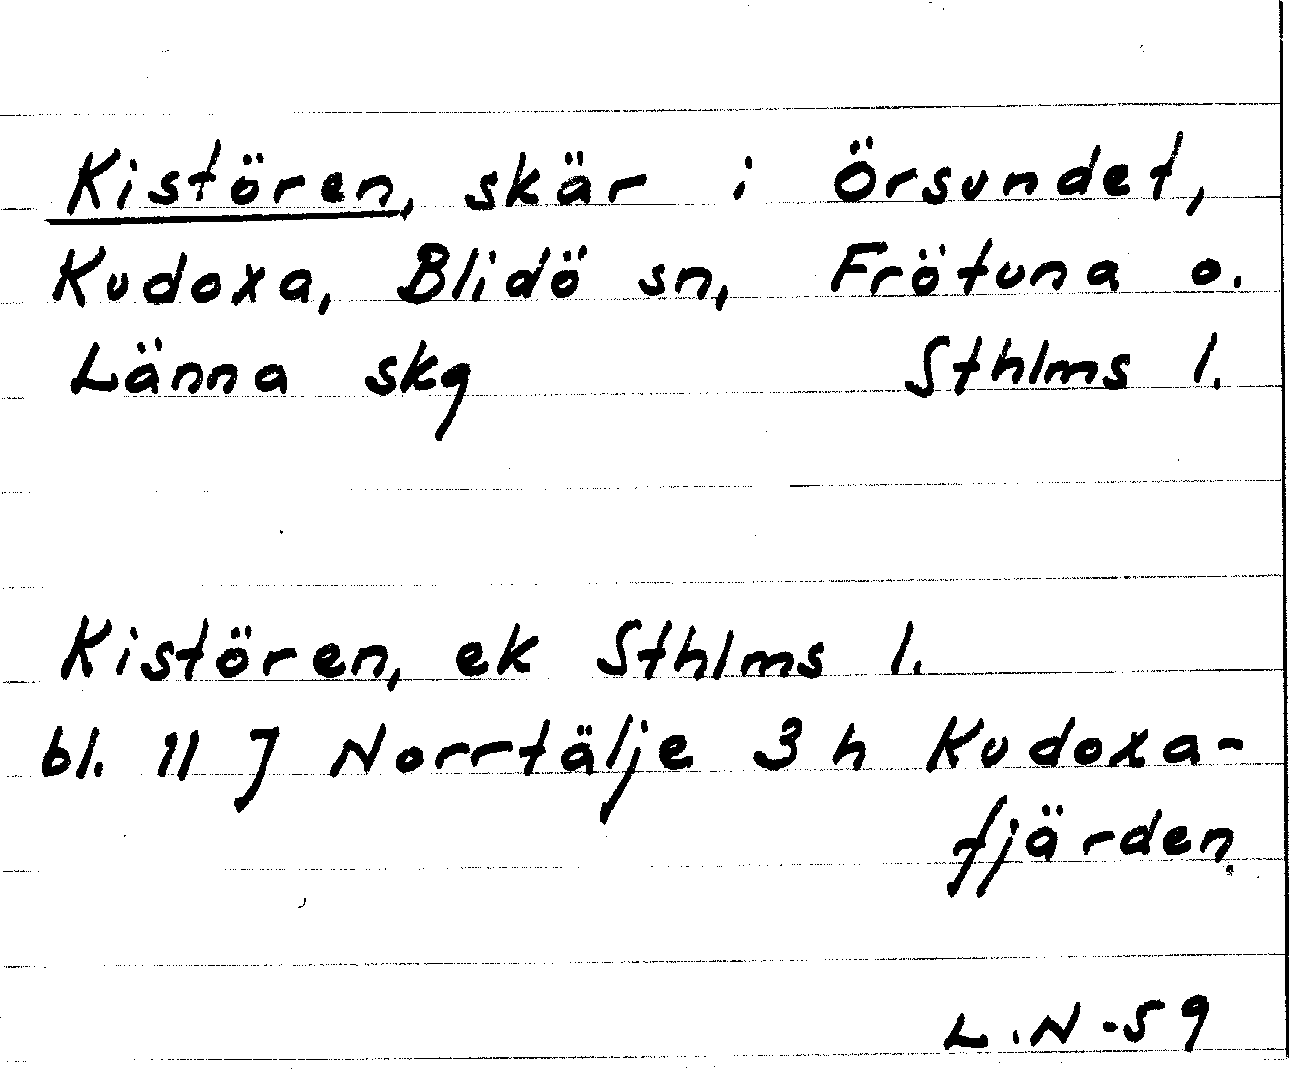 Kistören, skär i Örsundet,
Kudoxa, Blidö sn, Frötuna o.
Länna skg Sthlms l.
Kistören, ek Sthlms l.
bl. 11 J Norrtälje 3 h Kudoxa-
fjärden
L.N -59